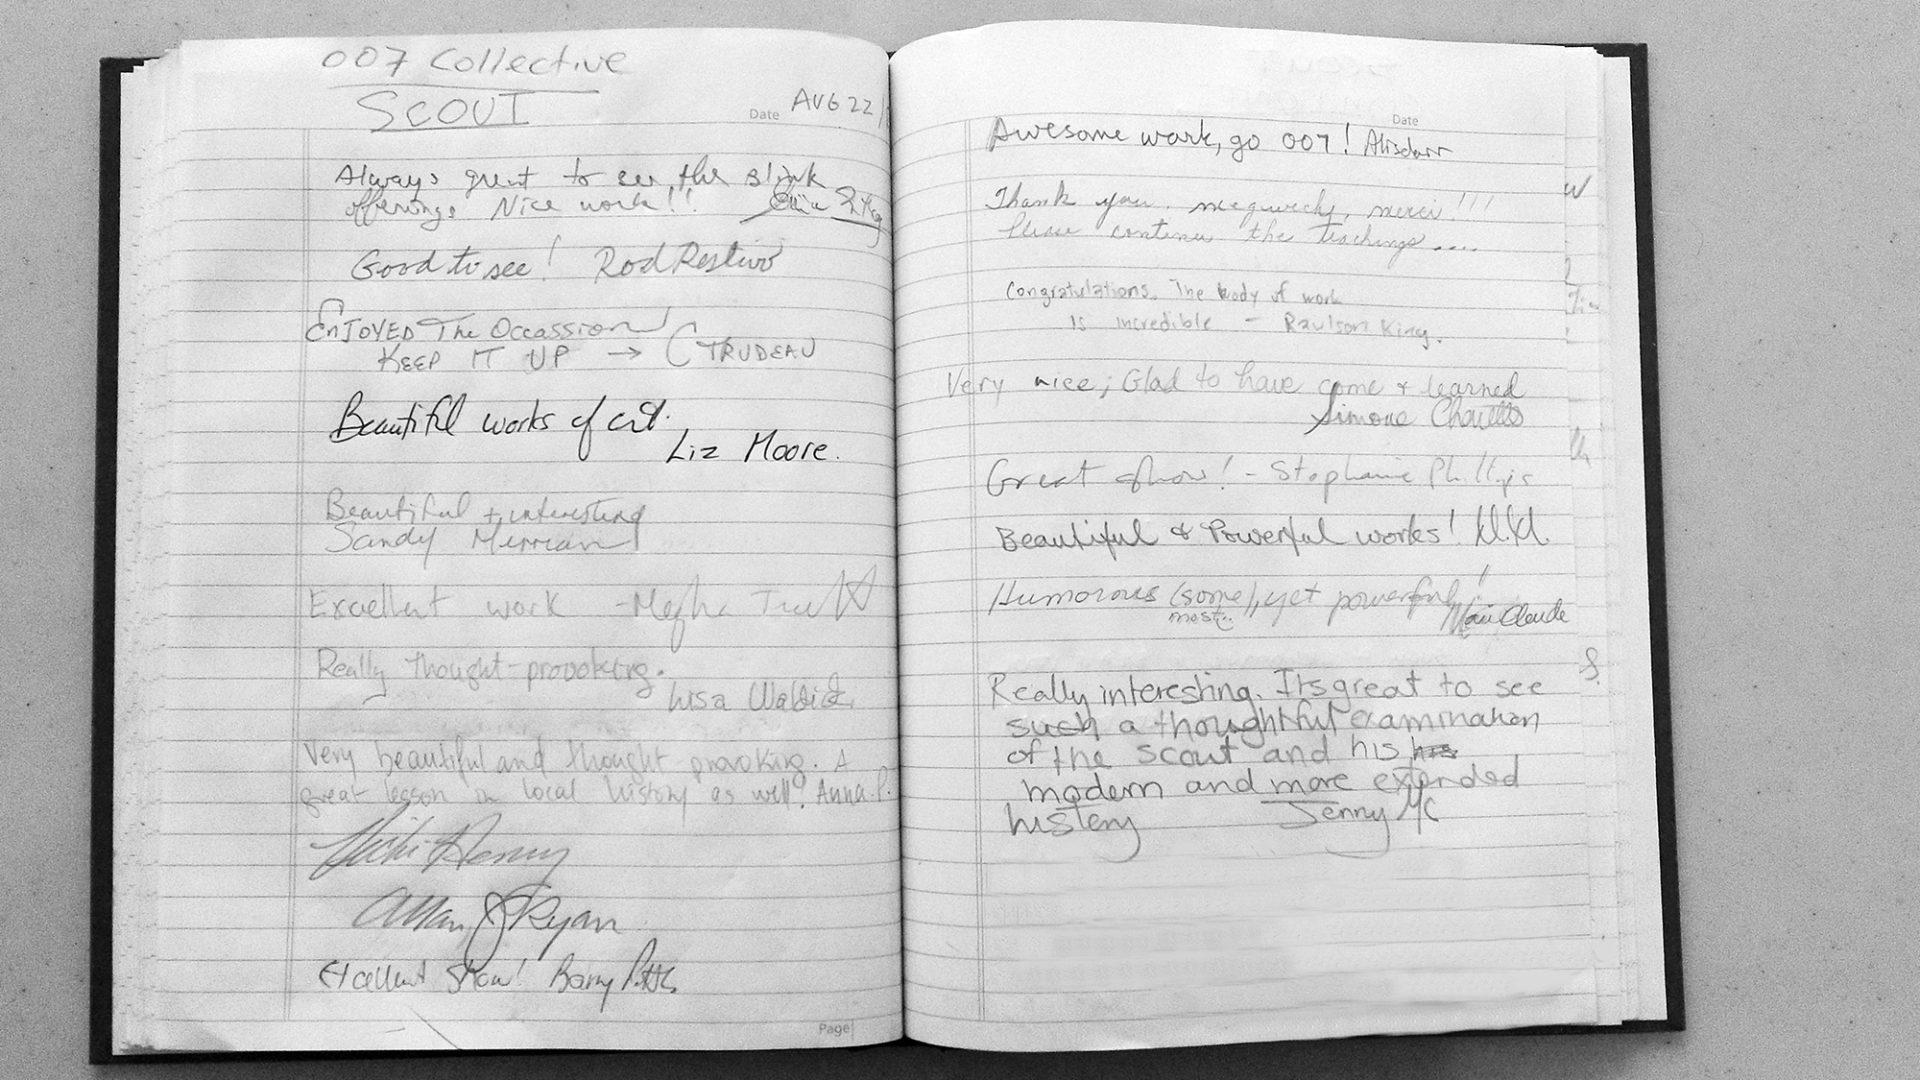 007 Collective
SCOUT
Date AUG 22/
Always great to see the
offerings Nice work!!
Good to see! Rod Restivo
ENJOYED The Occassion
KEEP IT UP → C TRUDEAU
Beautiful works of art.
Liz Moore.
Beautiful + interesting
Sandy
Excellent work -
Really thought-provoking.
Lisa
Very beautiful and thought provoking. A
great lesson in local history as well! Anna P.
Allan J Ryan
Excellent Show! Barry
Page
Date
Awesome work, go 007!
Thank you, megwech, merci!!!
Please continue the teachings....
Congratulations. The body of work
is incredible - Raulson King.
Very nice; Glad to have come + learned
Simone
Great show! - Stephanie Phillips
Beautiful & Powerful works!
Humorous (some), yet powerful!
most..
Marie Claude
Really interesting. Its great to see
such a thoughtful examination
of the scout and his his
modern and more extended
history Jenny Mc